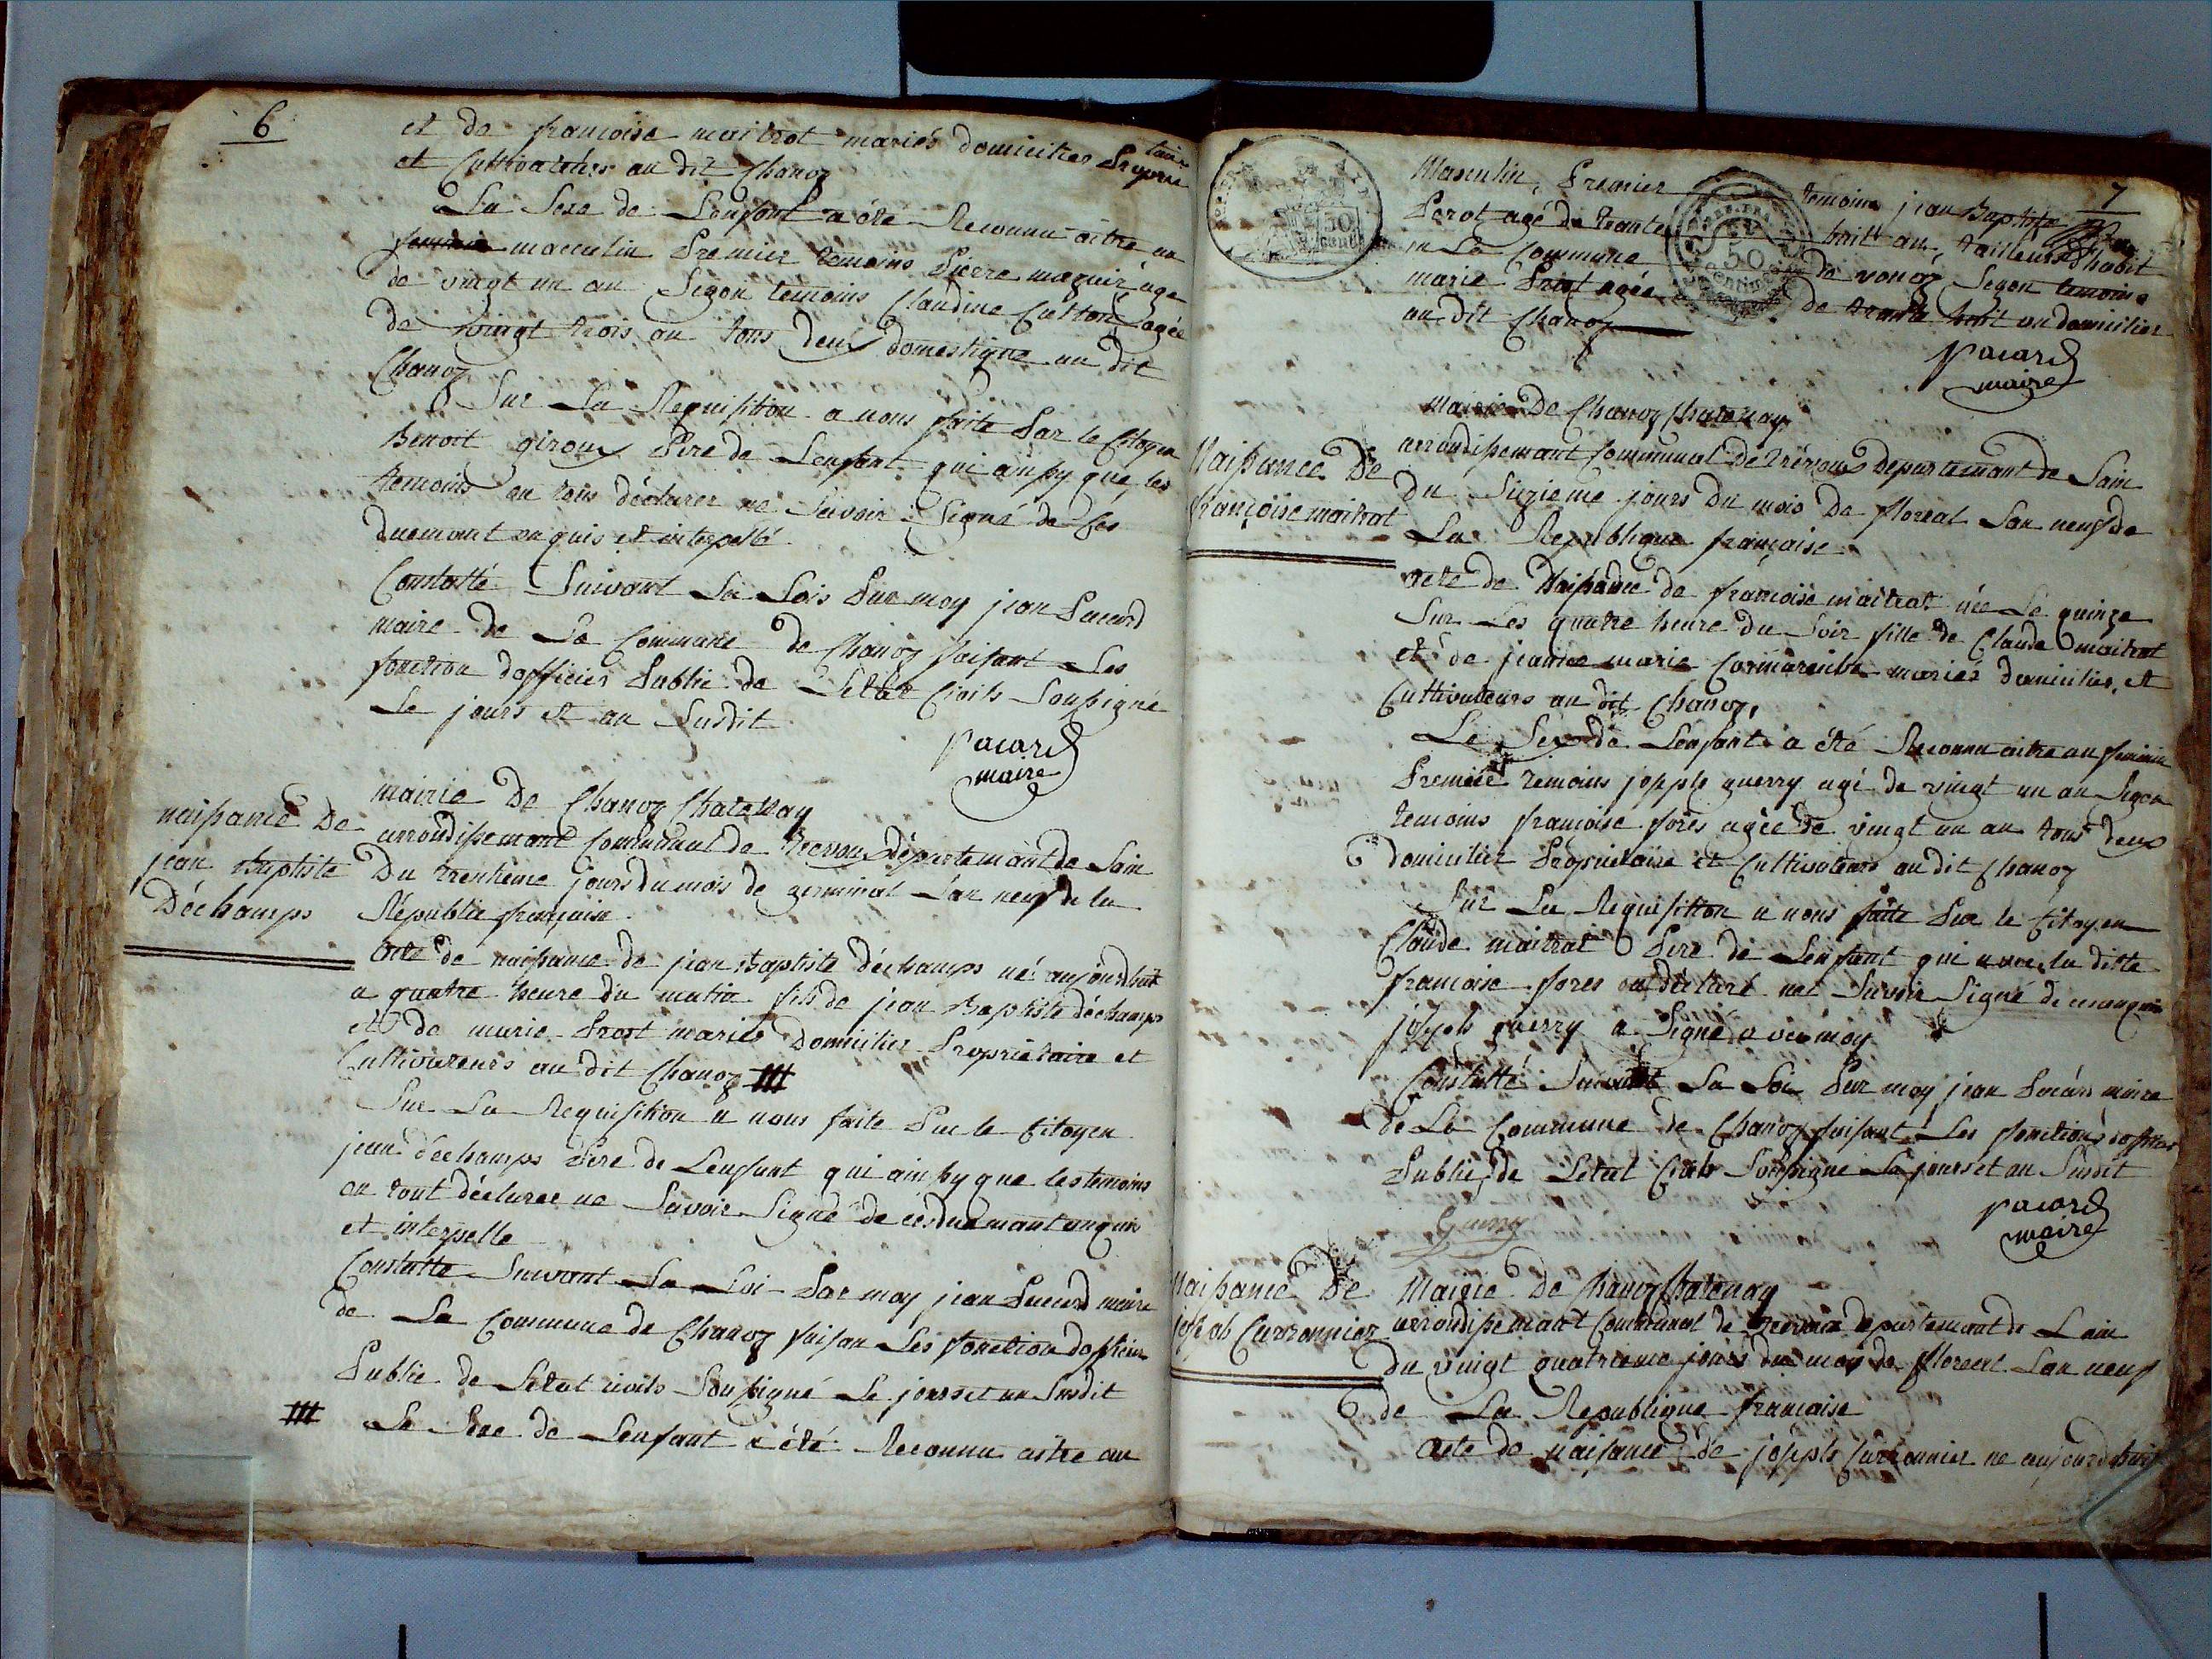 6
et de francoise maitrot mariés domicilies proprie
taire
et Cultivateurs au dit Chanoz
La Sexe de Lenfant a été Reconnu aître un
feminin masculin Premier temoins Pierre maguir, age
de vingt un an Segon temoins Claudine Cutton agée
de vingt trois an tous deux domestique au dit
Chanoz
Sur La Requisition a nous faite Par le Citoyen
Benoit giroux Pere de Lenfant qui ainsy que, les
temoins on tous déclarer ne Savoir Signé de Ces
duemant enquis et interpellé
Constatté Suivant La Lois Par moy jean Pacard
maire de La Commune de Chanoz faisant Les
fonction dofficier Public de Letat Civils Soussigné
Le jours et an Susdit
Pacard
maire
naissance De
jean Baptiste
Déchamps
mairie De Chanoz Chatenay
arrondissemant Communal de trevoux Départemant de Lain
Du trentieme jours du mois de germinal Lan neuf de la
Républic francaise
acte de naissance de jean Baptiste déchamps né aujourdhuit
a quatre heure du matin fils de jean Baptiste déchamps
et de marie Prost mariés Domicilies Proprietaire et
Cultivateurs au dit Chanoz ///
Sur La Requisition a nous faite Par le Citoyen
jean déchamps Pere de Lenfant qui ainsy que les temoins
on tout déclarer ne Savoir Signé de ces duemant enquis
et interpelle
Constatté Suivant La Loi Par moy jean Pacard maire
de La Commune de Chanoz faisan Les fonction doffisier
Public de Letat civils Soussigné Le jours et an Susdit
/// Le Sexe de Lenfant a été Reconnu aitre au
7
50
Masculin, Premier temoins jean Baptiste
Perot agé de trante huit an, tailleurs dhabit
in La Commune de vonoz Segon temoins
marie Prost agée de trante huit an domicilier
au dit Chanoz
Pacard
maire
Naissance De
francoise maitrat
mairie De Chanoz Chatenay
arrondissemant Communal de trévoux Departemant de Lain
Du Sizieme jours Du mois De floreal Lan neuf de
La Republique francaise
acte de Naissance de francoise maitrat née Le quinze
Sur Les quatre heure du Soir fille de Claude maitrat
et de jeanne marie Cormareche mariés domicilies, et
Cultivateurs au dit Chanoz,
Le Sex de Lenfant a été Reconnu aitre au feminin
Premier temoins joseph guerry agé de vingt un an Segon
temoins francoise forés agée de vingt un an tous deux
domicilier Proprietaire et Cultivateurs au dit Chanoz
Sur La Requisition a nous faite Par le Citoyen
Claude maitrat Pere de Lenfant qui avec la ditte
francoise fores on déclaré ne Savoir Signé de
joseph guerry a Signé avec moy
Constatté Suivant La Loi Par moy jean Pacard maire
de La Commune de Chanoz faisant Les fonctions doffisier
Public, de Letat Civils Soussigne Le jours et an Susdit
Guerry
Pacard
maire
Naissance De
joseph Carronnier
Mairie De Chanoz Chatenay
arrondissemant Communal de trevoux departemant de Lain
du vingt quatrieme jours du moy de floreal Lan neuf
de La Republique francaise
acte de naissance de joseph Carronnier ne aujourdhuit